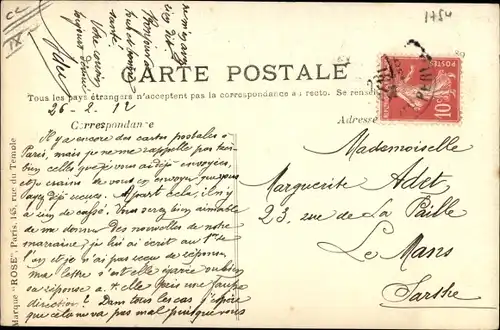 1754
CC
IX
CARTE POSTALE
Tous les pays étrangers n'acceptent pas la correspondance au recto. Se renseigner
26-2-12
Correspondance
Adresse
RÉPUBLIQUE FRANÇAISE
POSTES
10c
Il y a encore des cartes postales à
Paris, mais je ne me rappelle pas très
bien celles que je vous ai déjà envoyées,
et je crains de vous en envoyer que vous
ayez déjà reçues. A part cela, il n'y
a rien de cassé. Vous serez bien aimable
de me donner des nouvelles de notre
marraine; je lui ai écrit au 1er de
l'an et je n'ai pas reçu de réponse,
ma lettre s'est-elle égarée ou bien
sa réponse a-t-elle pris une fausse
direction? Dans tous les cas j'espère
que cela ne va pas mal puisque vous
Mademoiselle
Marguerite Adet
23, rue de La Paille
Le Mans
Sarthe
Marque "ROSE" Paris, 145, rue du Temple